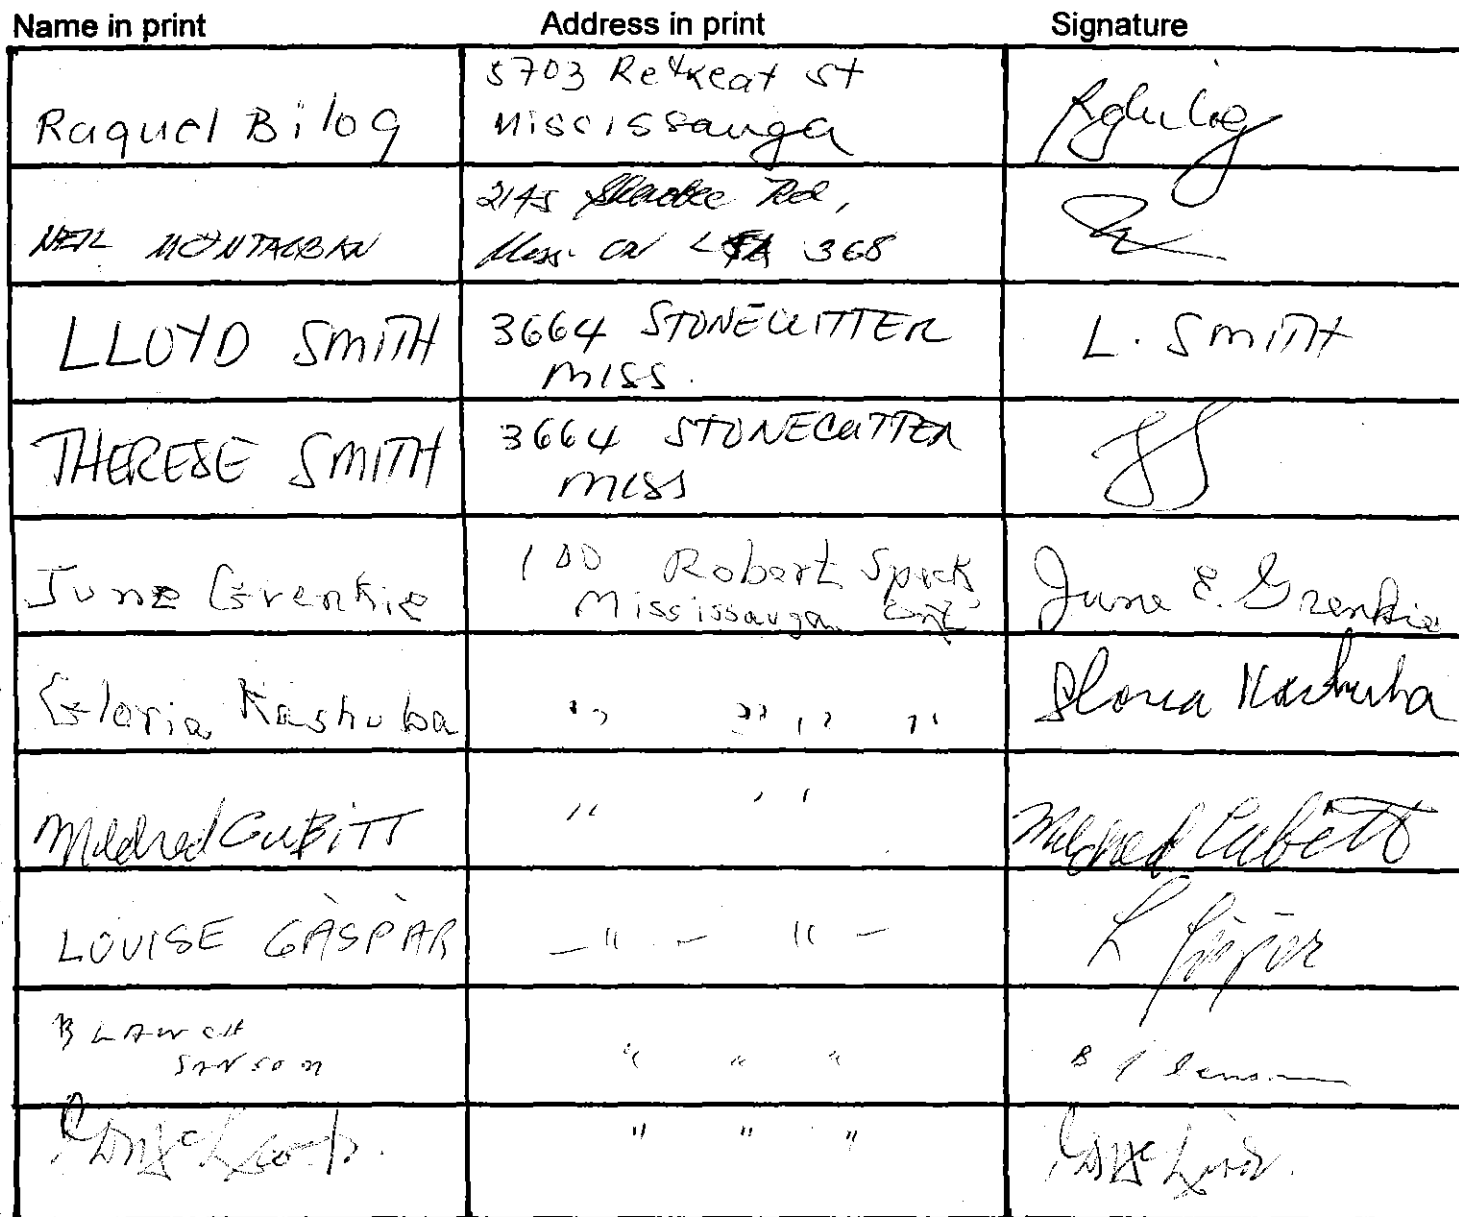 Name in print Address in print Signature
Raquel Bilog 5703 Retreat St
Miscissauga
NEIL MONTALBAN 2145 Rd,
Miss. ON L5A 3G8
LLOYD SMITH 3664 STONECUTTER L. SMITH
MISS.
THERESE SMITH 3664 STONECUTTER
MISS
June Grenkie 100 Robert Speck June E. Grenkie
Mississauga Ont
Gloria Kashuba " " " " Gloria Kashuba
Mildred CUBITT " " Mildred Cubitt
LOUISE GASPAR - " - " - L Gaspar
BLANCH " " " B
SANSON
" " "